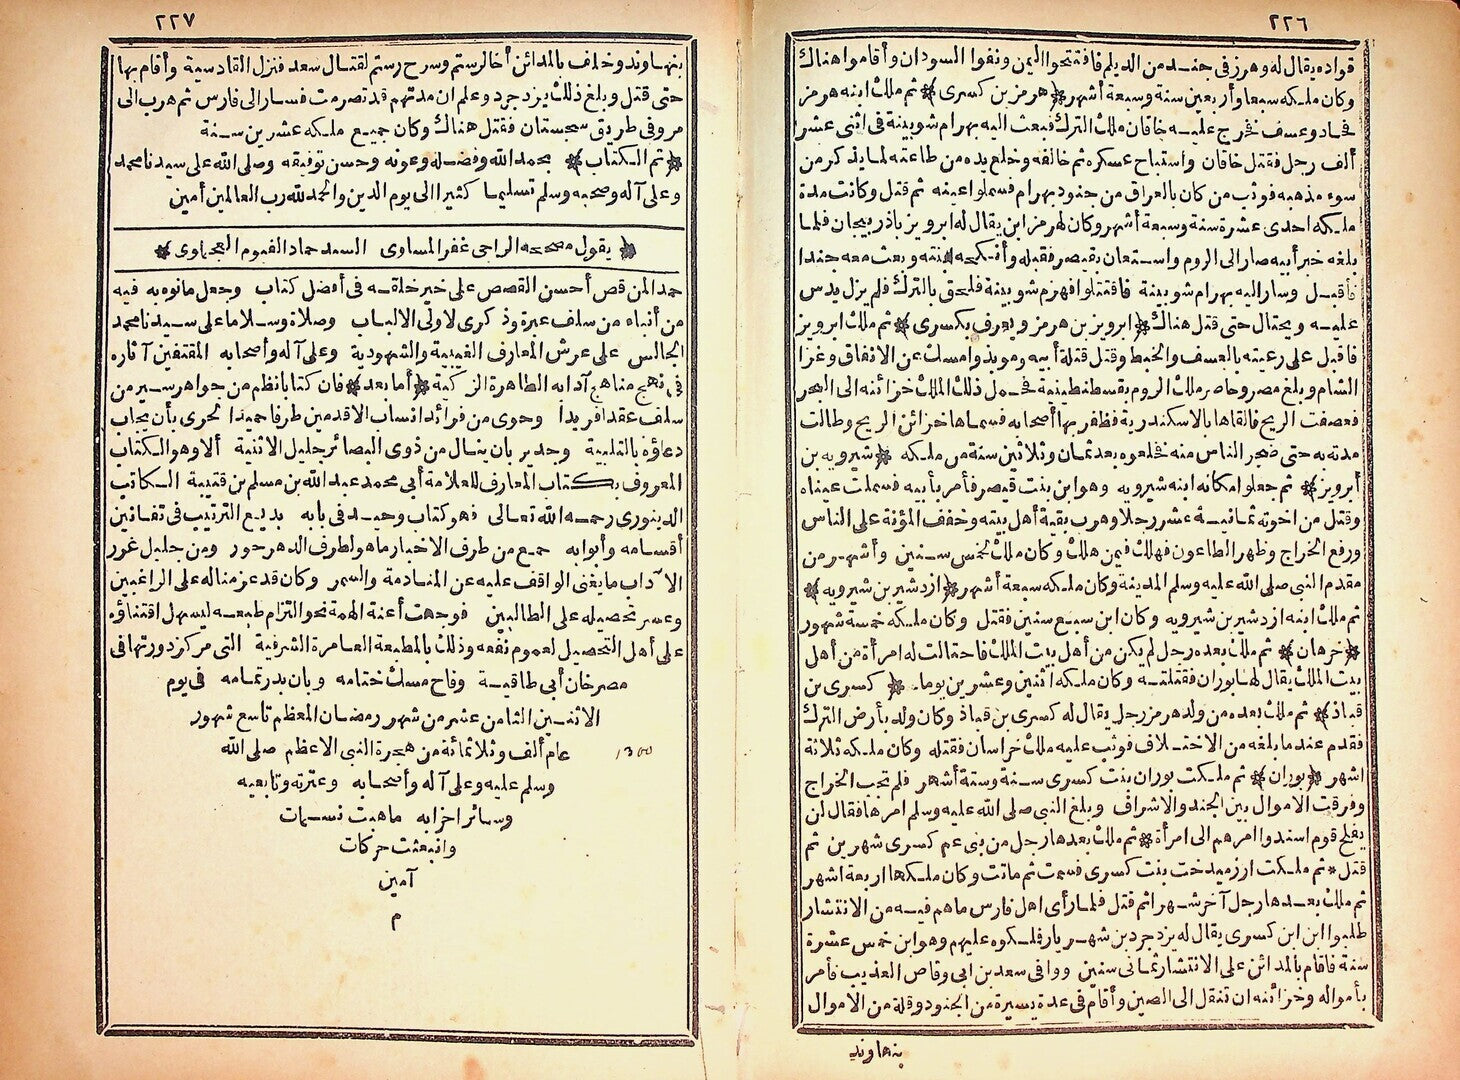 ٢٢٦
قواده يقال له وهرز فى جند من الديلم فافتتحوا اليمن ونفوا السودان وأقاموا هناك
وكان ملكه سبعا وأربعين سنة وسبعة أشهر * هرمز بن كسرى * ثم ملك ابنه هرمز
فجار وعسف فخرج عليه خاقان ملك الترك فبعث اليه بهرام شوبينة فى اثنى عشر
ألف رجل فقتل خاقان واستباح عسكره ثم خالفه وخلع يده من طاعته لما يذكر من
سوء مذهبه فوثب من كان بالعراق من جنود بهرام فسملوا عينه ثم قتل وكانت مدة
ملكه احدى عشرة سنة وسبعة أشهر وكان لهرمز ابن يقال له ابرويز باذربيجان فلما
بلغه خبر أبيه صار الى الروم واستعان بقيصر فقبله وأنكحه ابنته وبعث معه جندا
فأقبل وسار اليه بهرام شوبينة فاقتتلوا فهزم شوبينة فلحق بالترك فلم يزل يدس
عليه ويحتال حتى قتل هناك * ابرويز بن هرمز ويعرف بكسرى * ثم ملك ابرويز
فاقبل على رعيته بالعسف والخبط وقتل قتلة أبيه وموبذ وامسك عن الانفاق وغزا
الشام وبلغ مصر وحاصر ملك الروم بقسطنطينية فحمل ذلك الملك خزائنه الى البحر
فعصفت الريح فالقاها بالاسكندرية فظفر بها أصحابه فسماها خزائن الريح وطالت
مدته به حتى ضجر الناس منه فخلعوه بعد ثمان وثلاثين سنة من ملكه * شيرويه بن
أبرويز * ثم جعلوا مكانه ابنه شيرويه وهو ابن بنت قيصر فأمر بأبيه فسملت عيناه
وقتل من اخوته ثمانية عشر رجلا وهرب بقية أهل بيته وخفف المؤنة على الناس
ورفع الخراج وظهر الطاعون فهلك فيمن هلك وكان ملك لخمس سنين وأشهر من
مقدم النبى صلى الله عليه وسلم المدينة وكان ملكه سبعة أشهر * ازدشير بن شيرويه *
ثم ملك ابنه ازدشير بن شيرويه وكان ابن سبع سنين فقتل وكان ملكه خمسة شهور
* خرهان * ثم ملك بعده رجل لم يكن من أهل بيت الملك فاحتالت له امرأة من أهل
بيت الملك يقال لها بوران فقتلته وكان ملكه اثنين وعشرين يوما * كسرى بن
قباذ * ثم ملك بعده من ولد هرمز رجل يقال له كسرى بن قباذ وكان ولد بأرض الترك
فقدم عند ما بلغه من الاختلاف فوثب عليه ملك خراسان فقتله وكان ملكه ثلاثة
اشهر * بوران * ثم ملكت بوران بنت كسرى سنة وستة أشهر فلم تجب الخراج
وفرقت الاموال بين الجند والاشراف وبلغ النبى صلى الله عليه وسلم امرها فقال لن
يفلح قوم اسندوا امرهم الى امرأة * ثم ملك بعدها رجل من بنى عم كسرى شهرين ثم
قتل * ثم ملكت ارزميدخت بنت كسرى فسمت ثم ماتت وكان ملكها اربعة اشهر
ثم ملك بعدها رجل آخر شهرا ثم قتل فلما رأى اهل فارس ما هم فيه من الانتشار
طلبوا ابن ابن كسرى يقال له يزدجرد بن شهريار فملكوه عليهم وهو ابن خمس عشرة
سنة فاقام بالمدائن على الانتشار ثمانى سنين ووافى سعد بن ابى وقاص العذيب فأمر
بأمواله وخزائنه ان تنقل الى الصين وأقام فى عدة يسيرة من الجنود وقلة من الاموال
بنهاوند
٢٢٧
بنهاوند وخلف بالمدائن أخا لرستم وسرح رستم لقتال سعد فنزل القادسية وأقام بها
حتى قتل وبلغ ذلك يزدجرد وعلم ان مدتهم قد تصرمت فسار الى فارس ثم هرب الى
مرو فى طريق سجستان فقتل هناك وكان جميع ملكه عشرين سنة
* تم الكتاب * بحمد الله وفضله وعونه وحسن توفيقه وصلى الله على سيدنا محمد
وعلى آله وصحبه وسلم تسليما كثيرا الى يوم الدين والحمد لله رب العالمين أمين
* يقول مصححه الراجى غفر المساوى السيد حماد الفيومى العجماوى *
حمدا لمن قص أحسن القصص على خير خلقه فى أفضل كتاب وجعل ما نوه به فيه
من أنباء من سلف عبرة وذكرى لاولى الالباب وصلاة وسلاما على سيدنا محمد
الجالس على عرش المعارف الغيبية والشهودية وعلى آله وأصحابه المقتفين آثاره
فى نهج مناهج آدابه الطاهرة الزكية * أما بعد * فان كتابا نظم من جواهر سير من
سلف عقدا فريدا وحوى من فرائد انساب الاقدمين طرفا حميدا لحرى بأن يجاب
دعاؤه بالتلبية وجدير بان ينال من ذوى البصائر جليل الاثنية ألا وهو الكتاب
المعروف بكتاب المعارف للعلامة أبى محمد عبد الله بن مسلم بن قتيبة الكاتب
الدينورى رحمه الله تعالى فهو كتاب وحيد فى بابه بديع الترتيب فى تفانين
أقسامه وأبوابه جمع من طرف الاخبار ما هو لطرف الدهر حور ومن جليل غرر
الآداب ما يغنى الواقف عليه عن المنادمة والسمر وكان قد عز مناله على الراغبين
وعسر تحصيله على الطالبين فوجهت أعنة الهمة نحو التزام طبعه ليسهل اقتناؤه
على أهل التحصيل لعموم نفعه وذلك بالمطبعة العامرة الشرفية التى مركز دورتها فى
مصر خان أبى طاقية وفاح مسك ختامه وبان بدر تمامه فى يوم
الاثنين الثامن عشر من شهر رمضان المعظم تاسع شهور
عام ألف وثلاثمائة من هجرة النبى الاعظم صلى الله ١٣٠٠
وسلم عليه وعلى آله وأصحابه وعترته وتابعيه
وسائر احزابه ما هبت نسمات
وانبعثت حركات
آمين
م